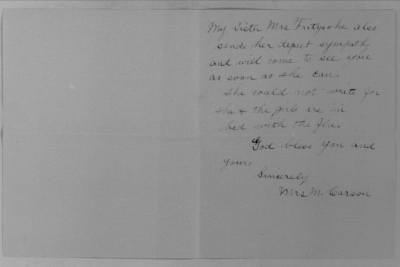 My Sister Mrs also
sends her depest sympathy
and will come to see you
as soon as she can.
She could not write for
she & the girls are in
bed with the flu.
God bless you and
yours
Sincerely
Mrs M. Carson